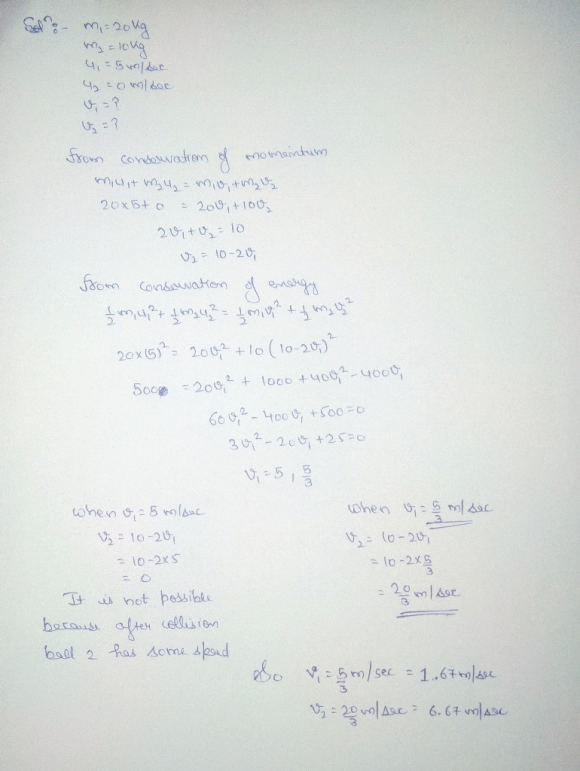 Solⁿ:- m₁ = 20kg
m₂ = 10kg
u₁ = 5 m/sec
u₂ = 0 m/sec
v₁ = ?
v₂ = ?
from conservation of momentum
m₁u₁ + m₂u₂ = m₁v₁ + m₂v₂
20×5+0 = 20v₁+10v₂
2v₁+v₂ = 10
v₂ = 10-2v₁
from conservation of energy
½m₁u₁² + ½m₂u₂² = ½m₁v₁² + ½m₂v₂²
20×(5)² = 20v₁² + 10(10-2v₁)²
500 = 20v₁² + 1000 + 40v₁² - 400v₁
60v₁² - 400v₁ + 500 = 0
3v₁² - 20v₁ + 25 = 0
v₁ = 5, 5/3
when v₁ = 5 m/sec
v₂ = 10-2v₁
= 10-2×5
= 0
It is not possible
because after collision
ball 2 has some speed
when v₁ = 5/3 m/sec
v₂ = 10-2v₁
= 10-2×5/3
= 20/3 m/sec
So v₁ = 5/3 m/sec = 1.67 m/sec
v₂ = 20/3 m/sec = 6.67 m/sec